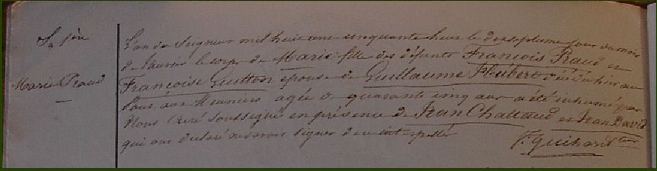 Sn père
Marie Praud
L'an du Seigneur mil huit cent cinquante huit le dixseptième jour du mois
de Janvier le corps de Marie fille des défunts François Praud et
Françoise Luitton épouse de Guillaume Hubert décédée hier au
aux Meuniers agée de quarante cinq ans a été inhumé par
Nous Curé soussigné en présence de Jean Chattaud et Jean David
qui ont déclaré ne savoir signer de ce interpellés
P. Guihard